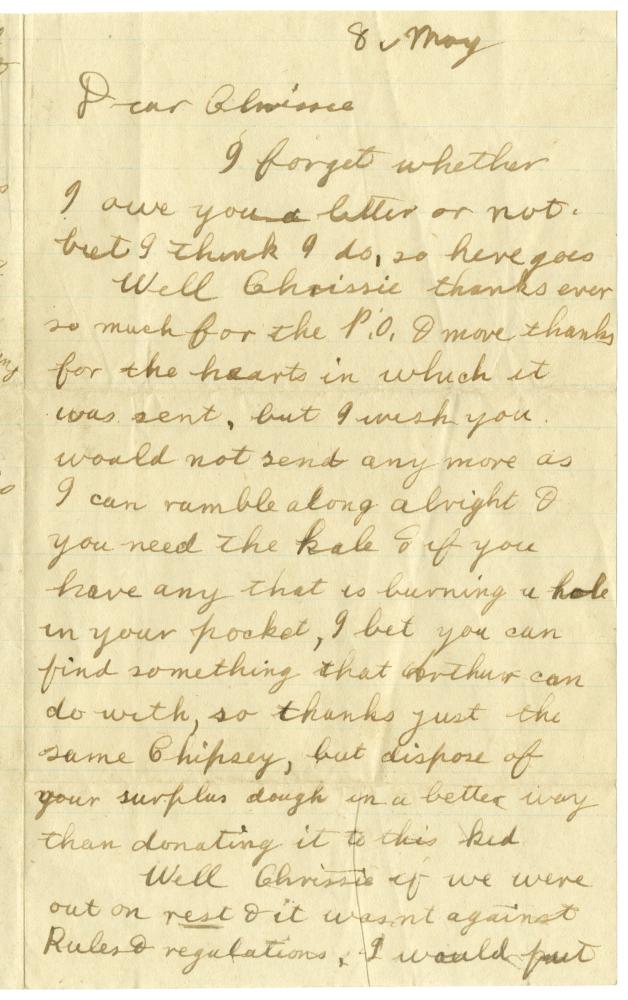 8 May
Dear Chrissie
I forget whether
I owe you a letter or not.
but I think I do, so here goes
Well Chrissie thanks ever
so much for the P.O. & more thanks
for the hearts in which it
was sent, but I wish you
would not send any more as
I can ramble along alright &
you need the kale & if you
have any that is burning a hole
in your pocket, I bet you can
find something that Arthur can
do with, so thanks just the
same Chipsey, but dispose of
your surplus dough in a better way
than donating it to this kid
Well Chrissie if we were
out on rest & it wasnt against
Rules & regulations, I would put